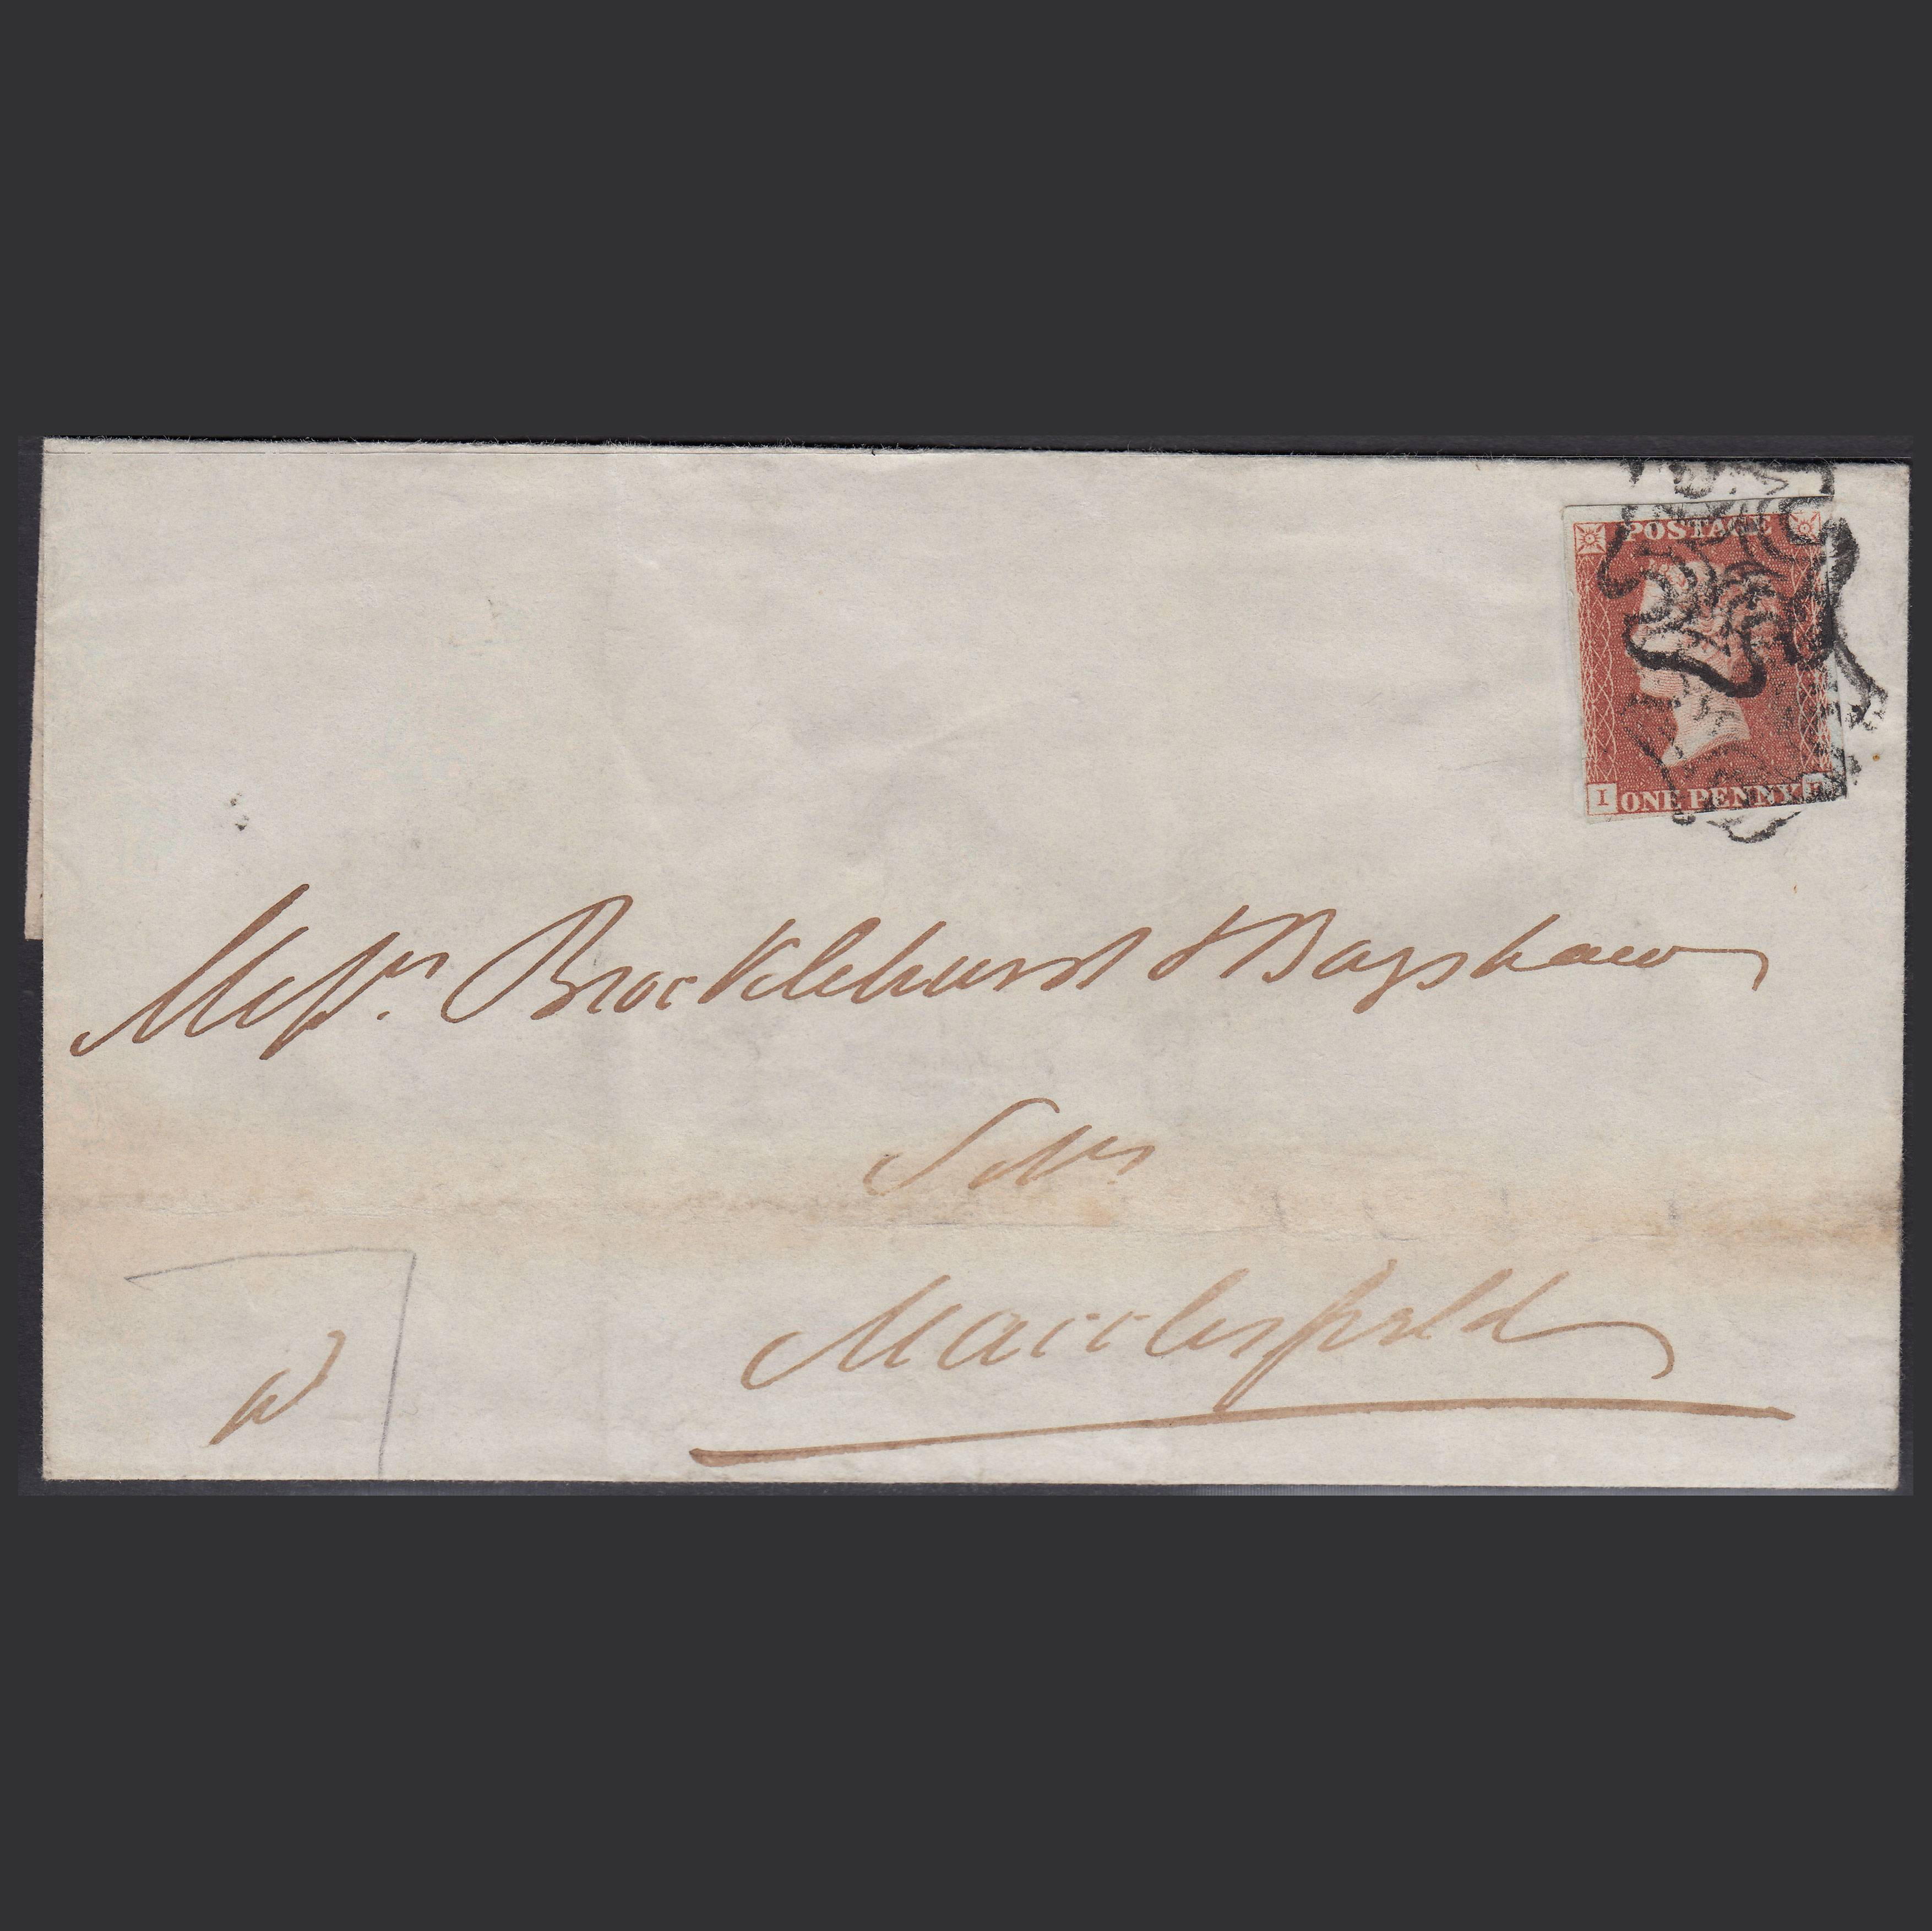 POSTAGE
I ONE PENNY
Messrs. Brocklehurst & Bagshaw
Solrs
Macclesfield